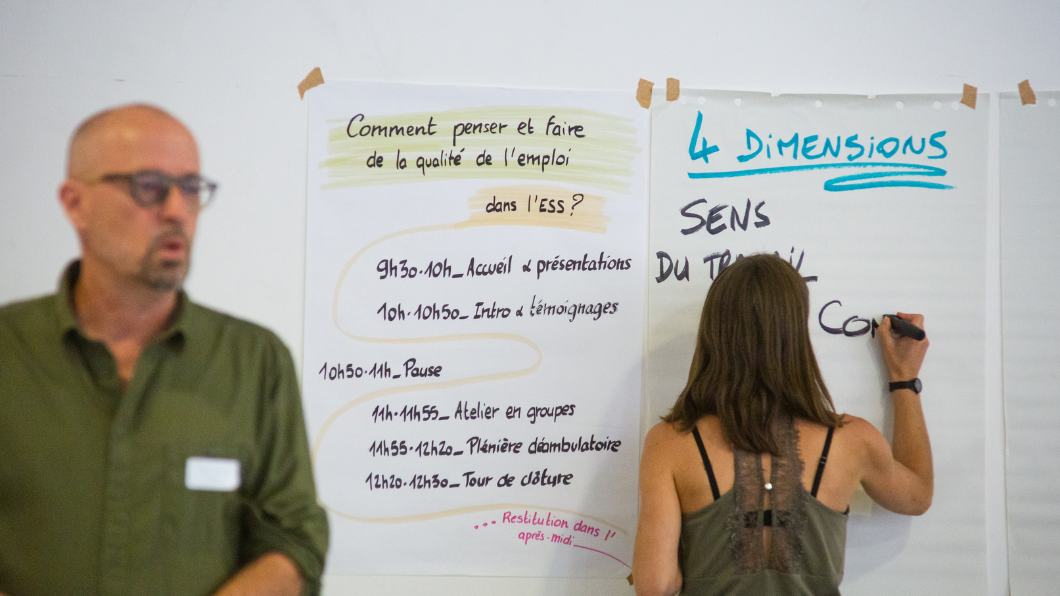 Comment penser et faire
de la qualité de l'emploi
dans l'ESS?
9h30-10h_Accueil & présentations
10h-10h50_Intro & témoignages
10h50-11h_Pause
11h-11h55_Atelier en groupes
11h55-12h20_Plénière déambulatoire
12h20-12h30_Tour de clôture
... Restitution dans l'
après-midi
4 DIMENSIONS
SENS
DU